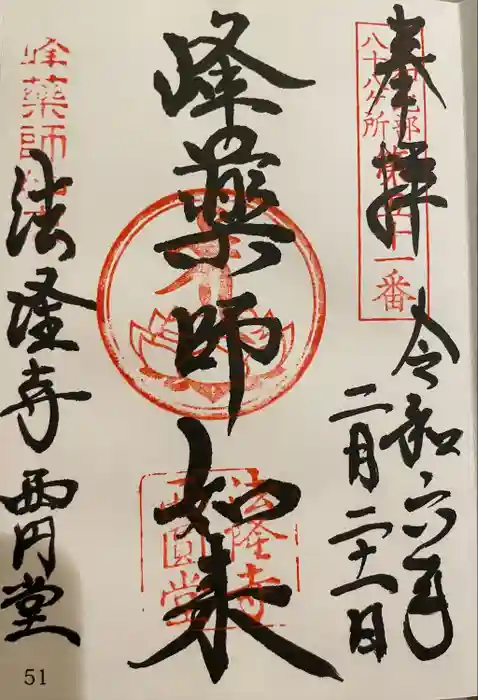 奉拝
八十八ヶ所
第五十一番
令和六年
二月二十一日
峰薬師如来
法隆寺
西圓堂
峰薬師
法隆寺西円堂
51